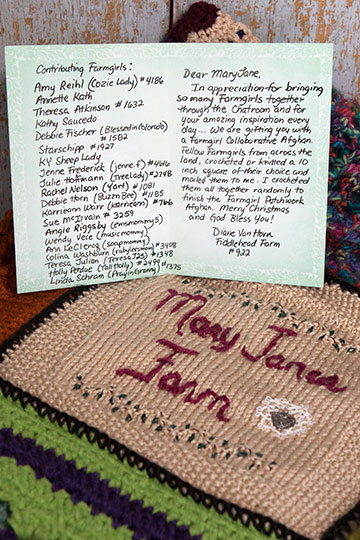 Contributing Farmgirls:
Amy Reihl (Cozie Lady) #4186
Annette Kath
Theresa Atkinson #1632
Kathy Saucedo
Debbie Fischer (Blessedincolorado)
#1582
Starschipp #1927
KY Sheep Lady
Jenne Frederick (jenne.f)
Julie Hoffmann (TreeLady) #2748
Rachel Nelson (Yart) #1081
Debbie Horn (Buzzin Bee) #1185
Karrieann Warr (Karrieann) #766
Sue McIlvain #3259
Angie Riggsby (emsmommy5)
Wendy Vece (musicmommy)
Ann LeClercq (soapmommy)
Colina Washburn (rubylersmom) #3408
Teresa Julian (Teresa Jas) #1348
Holly Perdue (Tall Holly) #2499
Linda Schram (Prayin Granny) #1375
Dear MaryJane,
In appreciation for bringing
so many Farmgirls together
through the Chatroom and for
your amazing inspiration every
day... We are gifting you with
a Farmgirl Collaborative Afghan.
Fellow Farmgirls from across the
land, crocheted or knitted a 10
inch square of their choice and
mailed them to me. I crocheted
them all together randomly to
finish the Farmgirl Patchwork
Afghan. Merry Christmas
and God Bless You!
Diane Van Horn
Fiddlehead Farm
#922
Mary Janes
Farm